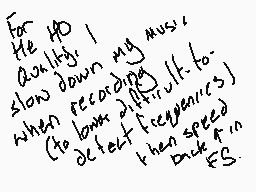 For
the HQ
quality, I
slow down my music
when recording
(to lower difficult-to-
detect frequencies)
then speed
back ↑ in
FS.